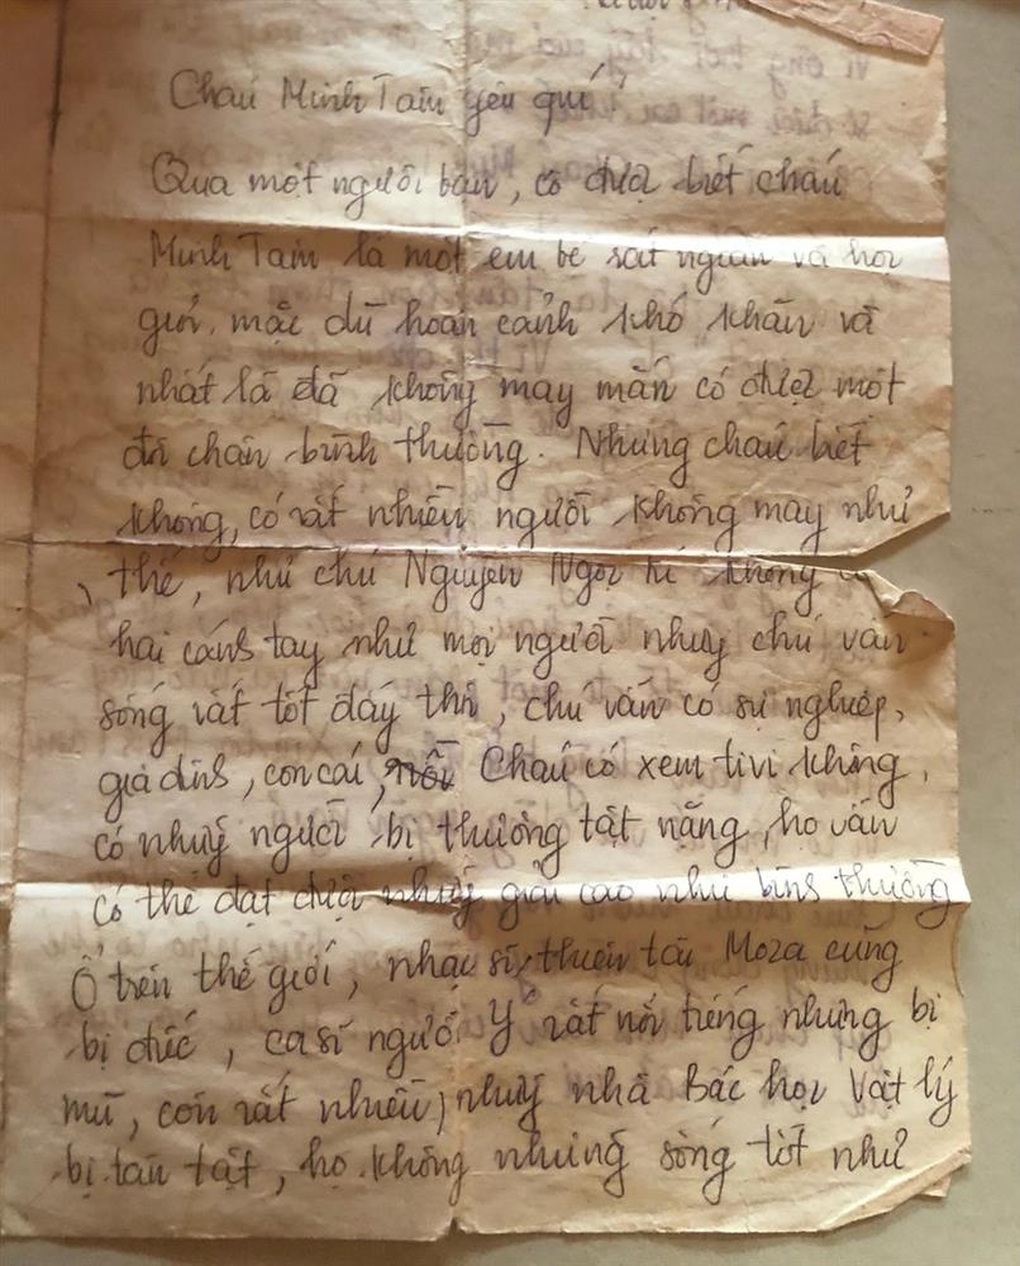 Cháu Minh Tâm yêu quí
Qua một người bạn, cô được biết cháu
Minh Tâm là một em bé rất ngoan và học
giỏi, mặc dù hoàn cảnh khó khăn và
nhất là đã không may mắn có được một
đôi chân bình thường. Nhưng cháu biết
không, có rất nhiều người không may như
thế, như chú Nguyễn Ngọc Kí không có
hai cánh tay như mọi người nhưng chú vẫn
sống rất tốt đấy thôi, chú vẫn có sự nghiệp,
gia đình, con cái, Cháu có xem tivi không,
có những người bị thương tật nặng, họ vẫn
có thể đạt được những giải cao như bình thường
Ở trên thế giới, nhạc sĩ thiên tài Moza cũng
bị điếc, ca sĩ người Ý rất nổi tiếng nhưng bị
mù, còn rất nhiều những nhà Bác học Vật lý
bị tàn tật, họ không những sống tốt như